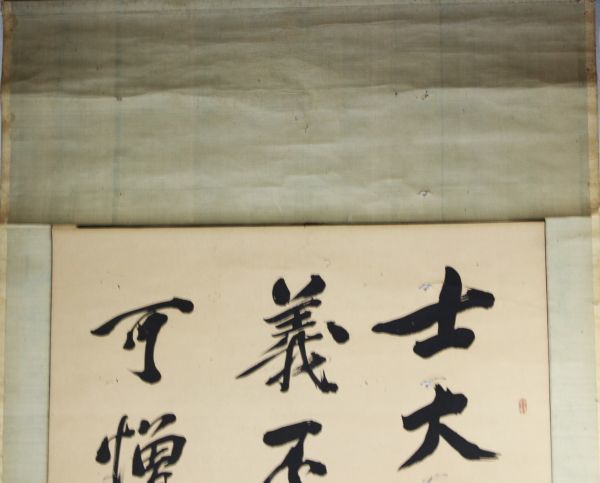 士大
義不
可憎